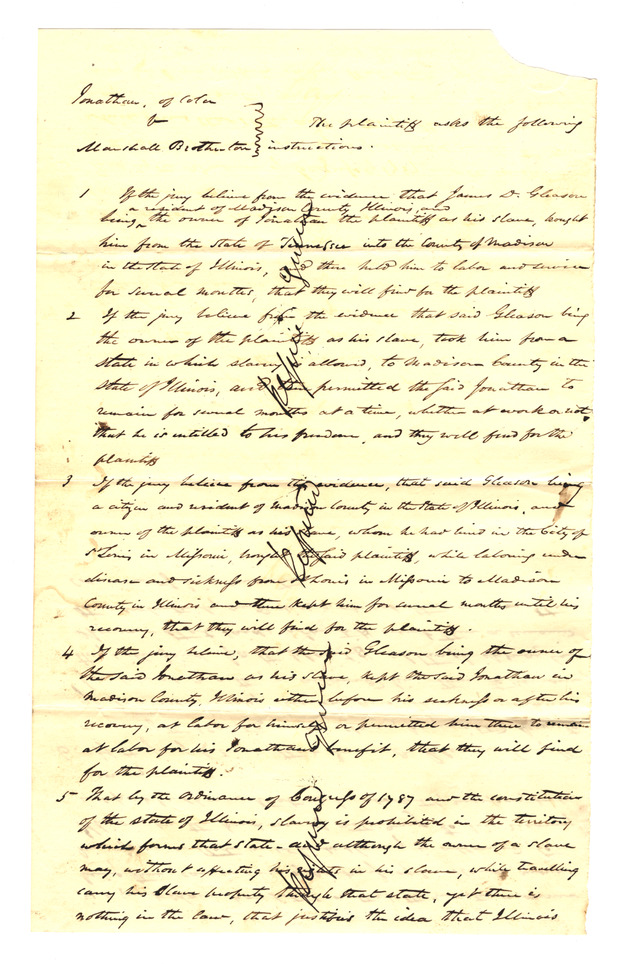 Jonathan, of Color
v
Marshall Brotherton
The plaintiff asks the following
instructions.
1 If the jury believe from the evidence that James D. Gleason
a resident of Madison County Illinois, and
being, the owner of Jonathan the plaintiff as his slave, brought
him from the State of Tennessee into the County of Madison
in the State of Illinois, and there held him to labor and service
for several months, that they will find for the plaintiff
2 If the jury believe from the evidence that said Gleason being
the owner of the plaintiff as his slave, took him from a
state in which slavery is allowed, to Madison County in the
State of Illinois, and then permitted the said Jonathan to
remain for several months at a time, whether at work or not
that he is entitled to his freedom, and they will find for the
plaintiff
3 If the jury believe from the evidence, that said Gleason being
a citizen and resident of Madison County in the State of Illinois, and
owner of the plaintiff as his slave, whom he had hired in the City of
St Louis in Missouri, brought the said plaintiff, while laboring under
disease and sickness from St Louis in Missouri to Madison
County in Illinois and there kept him for several months until his
recovery, that they will find for the plaintiff.
4 If the jury believe, that the said Gleason being the owner of
the said Jonathan as his slave, kept the said Jonathan in
Madison County, Illinois either before his sickness or after his
recovery, at labor for himself or permitted him there to remain
at labor for his Jonathans benefit, that they will find
for the plaintiff.
5 That by the Ordinance of Congress of 1787 and the constitution
of the state of Illinois, slavery is prohibited in the territory
which forms that state and although the owner of a slave
may, without affecting his rights in his slave, while travelling
carry his slave property through that state, yet there is
nothing in the law, that justifies the idea that Illinois
Refused
given
Refused
given
Refused